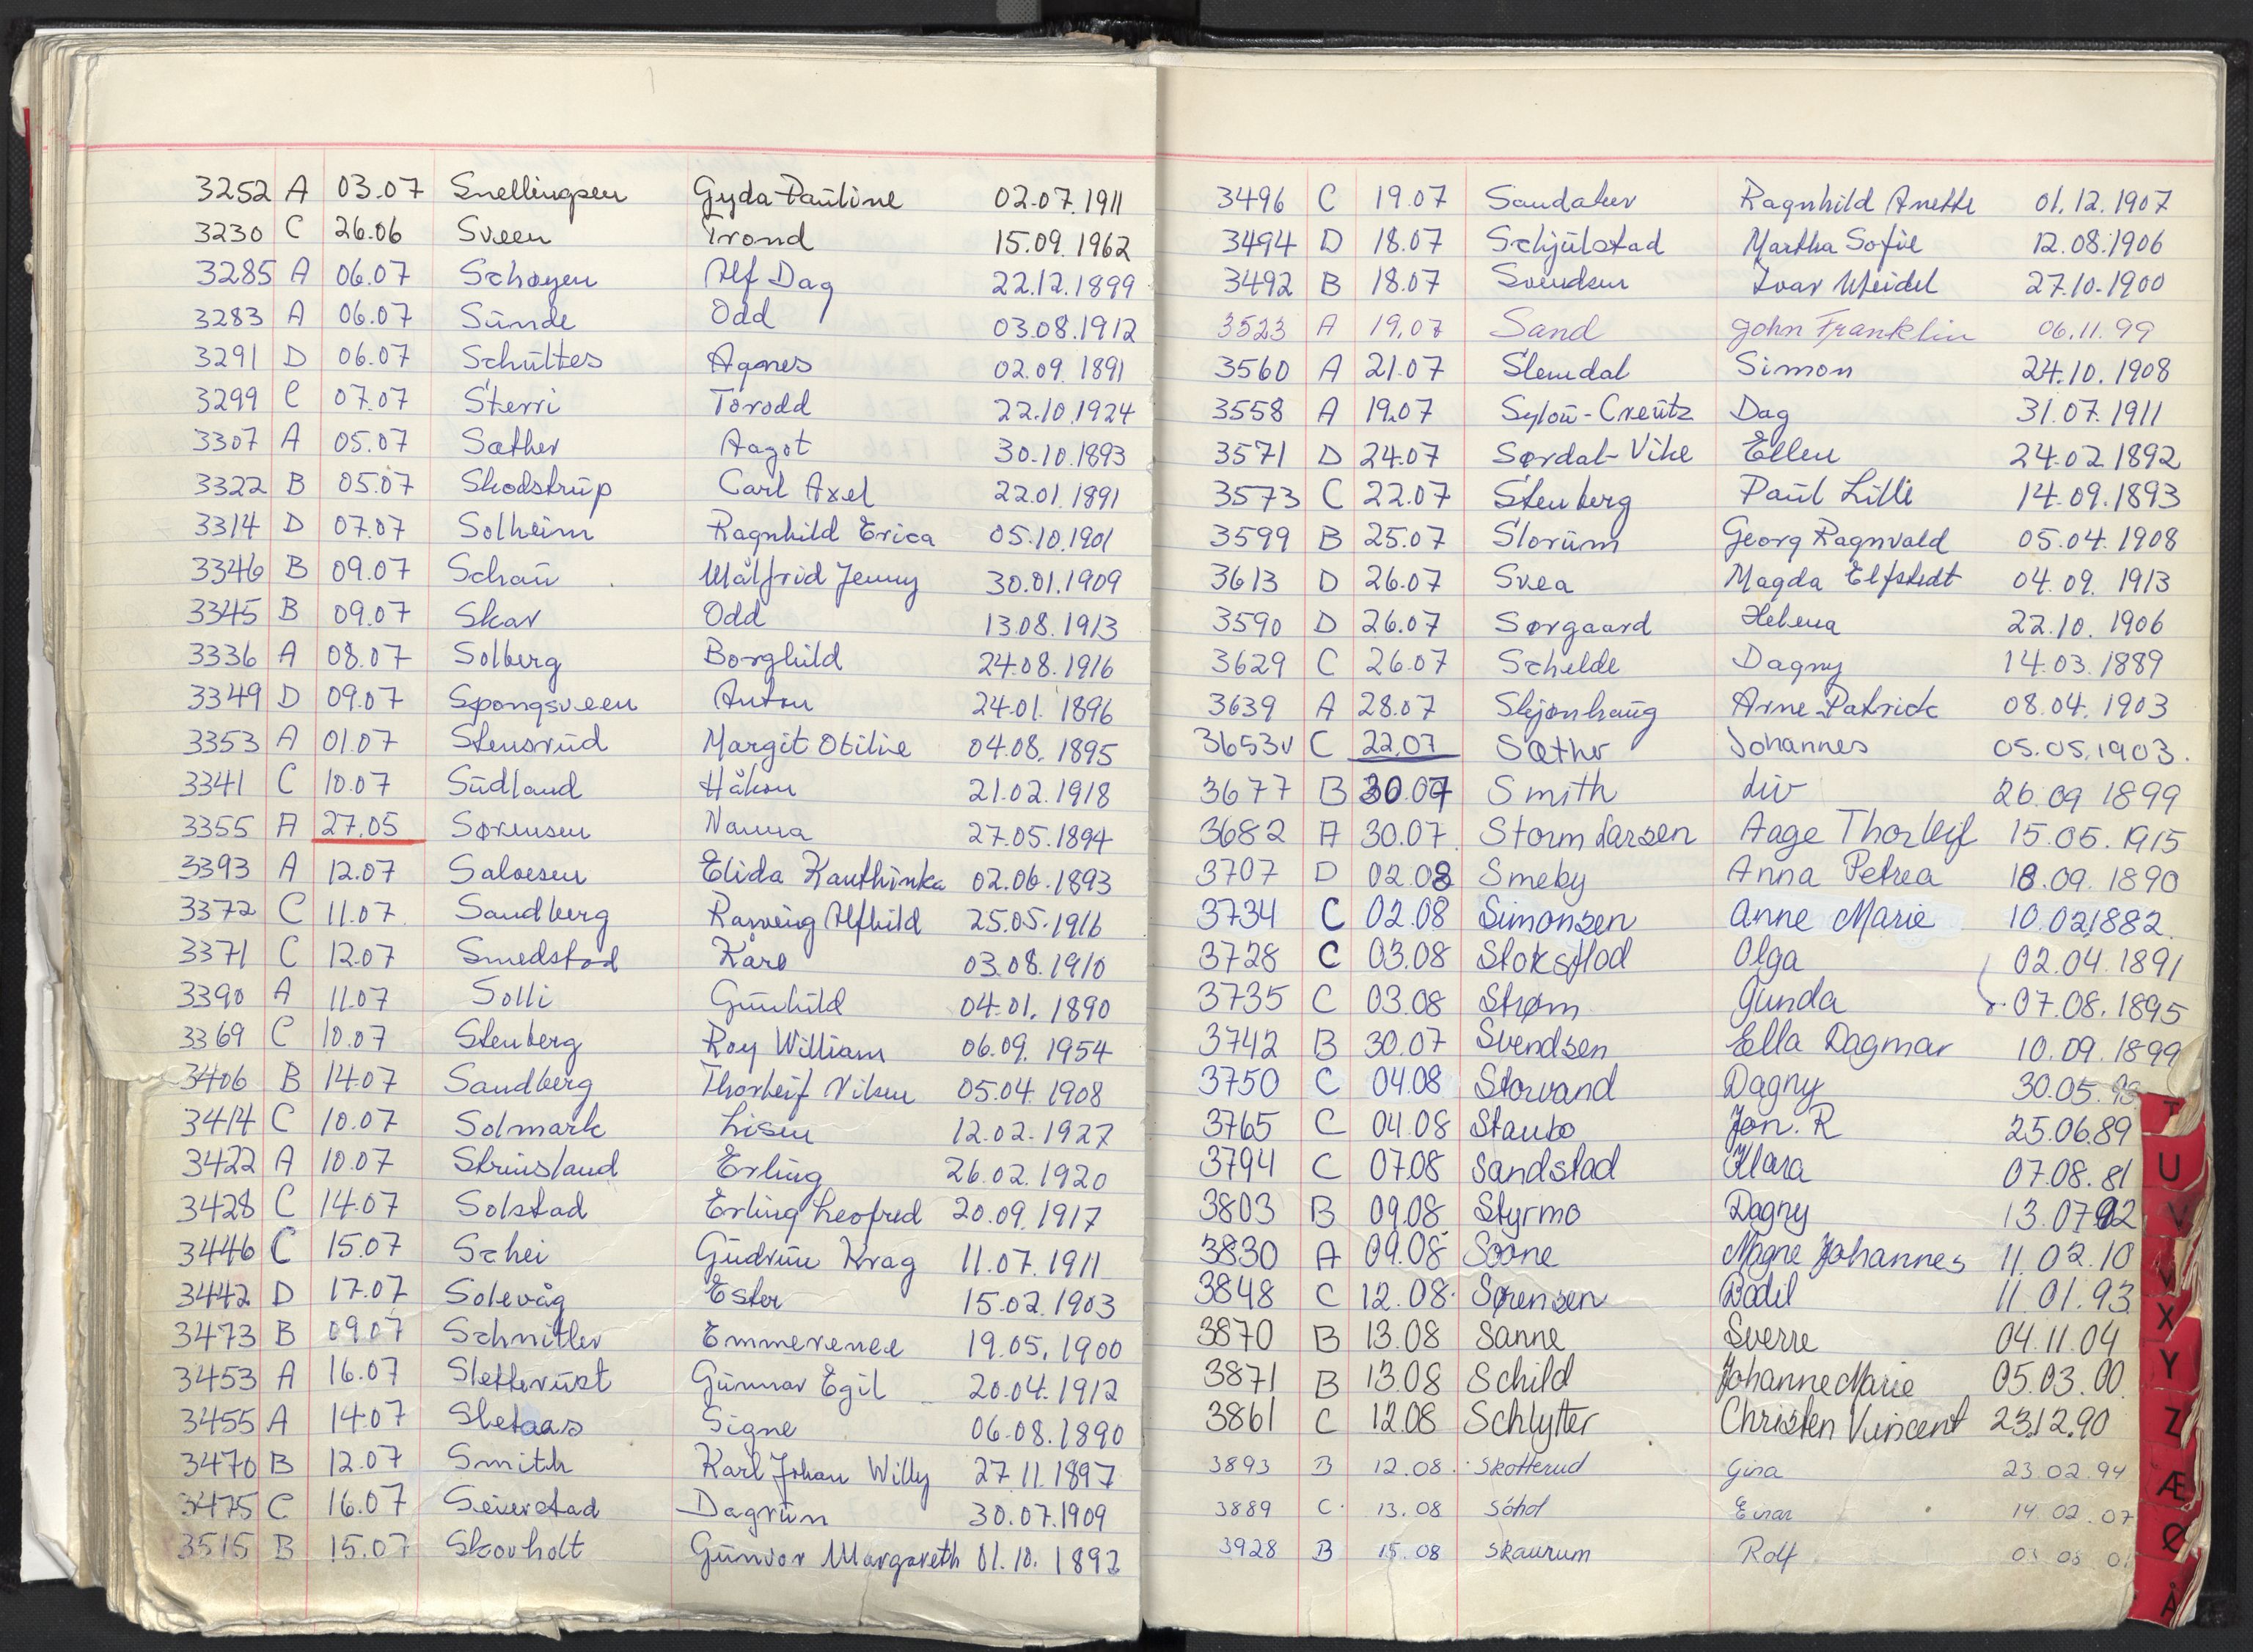 3252 A 03.07 Snellingsen Gyda Pauline 02.07.1911
3230 C 26.06 Sveen Trond 15.09.1962
3285 A 06.07 Schøyen Alf Dag 22.12.1899
3283 A 06.07 Sunde Odd 03.08.1912
3291 D 06.07 Schultes Agnes 02.09.1891
3299 C 07.07 Sterri Torodd 22.10.1924
3307 A 05.07 Sæther Aagot 30.10.1893
3322 B 05.07 Skodstrup Carl Axel 22.01.1891
3314 D 07.07 Solheim Ragnhild Erica 05.10.1901
3346 B 09.07 Schau Målfrid Jenny 30.01.1909
3345 B 09.07 Skar Odd 13.08.1913
3336 A 08.07 Solberg Borghild 24.08.1916
3349 D 09.07 Spongsveen Anton 24.01.1896
3353 A 01.07 Stensrud Margit Otilie 04.08.1895
3341 C 10.07 Sudland Håkon 21.02.1918
3355 A 27.05 Sørensen Nanna 27.05.1894
3393 A 12.07 Salvesen Elida Kauthinka 02.06.1893
3372 C 11.07 Sandberg Ranveig Alfhild 25.05.1916
3371 C 12.07 Smedstad Kåre 03.08.1910
3390 A 11.07 Solli Gunhild 04.01.1890
3369 C 10.07 Stenberg Roy William 06.09.1954
3406 B 14.07 Sandberg Thorleif Nilsen 05.04.1908
3414 C 10.07 Solmark Lisen 12.02.1927
3422 A 10.07 Strinsland Erling 26.02.1920
3428 C 14.07 Solstad Erling Leofred 20.09.1917
3446 C 15.07 Schei Gudrun Krag 11.07.1911
3442 D 17.07 Solevåg Ester 15.02.1903
3473 B 09.07 Schnitler Emmerence 19.05.1900
3453 A 16.07 Sletterust Gunnar Egil 20.04.1912
3455 A 14.07 Sletaas Signe 06.08.1890
3470 B 12.07 Smith Karl Johan Willy 27.11.1897
3475 C 16.07 Seierstad Dagrun 30.07.1909
3515 B 15.07 Skovholt Gunvor Margareth 01.10.1892
3496 C 19.07 Sandaker Ragnhild Anette 01.12.1907
3494 D 18.07 Schjulstad Martha Sofie 12.08.1906
3492 B 18.07 Svendsen Ivar Meidel 27.10.1900
3523 A 19.07 Sand John Franklin 06.11.99
3560 A 21.07 Slemdal Simon 24.10.1908
3558 A 19.07 Sylou-Creutz Dag 31.07.1911
3571 D 24.07 Sørdal-Vike Ellen 24.02.1892
3573 C 22.07 Stenberg Paul Lilli 14.09.1893
3599 B 25.07 Slorum Georg Ragnvald 05.04.1908
3613 D 26.07 Svea Magda Elfstedt 04.09.1913
3590 D 26.07 Sørgaard Helena 22.10.1906
3629 C 26.07 Schelde Dagny 14.03.1889
3639 A 28.07 Skjønhaug Arne Patrick 08.04.1903
3653v C 22.07 Sæther Johannes 05.05.1903.
3677 B 30.07 Smith Liv 26.09 1899
3682 A 30.07 Storm Larsen Aage Thorleif 15.05.1915
3707 D 02.08 Smeby Anna Petrea 18.09.1890
3734 C 02.08 Simonsen Anne Marie 10.02.1882.
3728 C 03.08 Stokstad Olga 02.04.1891
3735 C 03.08 Strøm Gunda 07.08.1895
3742 B 30.07 Svendsen Ella Dagmar 10.09.1899
3750 C 04.08 Storvand Dagny 30.05.
3765 C 04.08 Staubo Jon. R 25.06.89
3794 C 07.08 Sandstad Klara 07.08.81
3803 B 09.08 Styrmo Dagny 13.07.92
3830 A 09.08 Soone Magne Johannes 11.02.10
3848 C 12.08. Sørensen Bodil 11.01.93
3870 B 13.08 Sanne Sverre 04.11.04
3871 B 13.08 Schild Johanne Marie 05.03.00
3861 C 12.08 Schlytter Christen Vincent 23.12.90
3893 B 12.08. Skotterud Gina 23.02.94
3889 C. 13.08 Einar 14.02.07
3928 B 15.08 Skaurum Rolf
T
U
V
W
X
Y
Z
Æ
Ø
Å